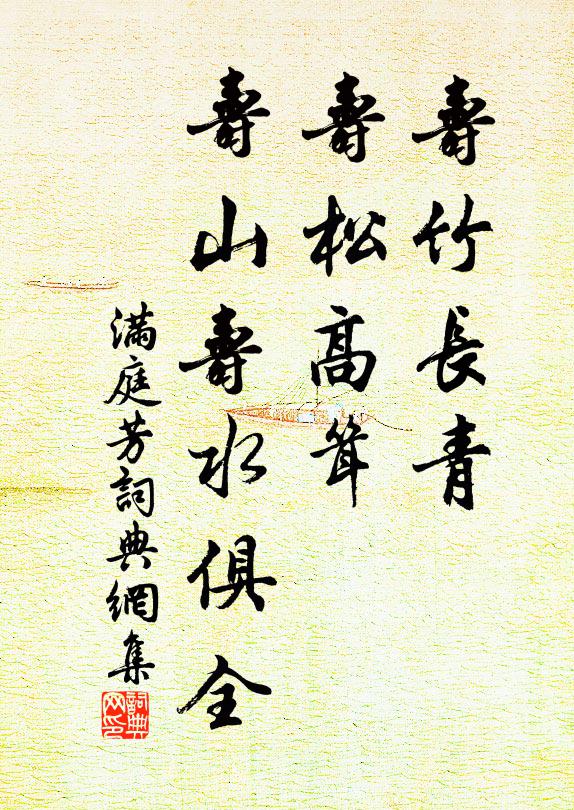 壽竹長青
壽松高聳
壽山壽水俱全
滿庭芳詞典網集
詞典
网印